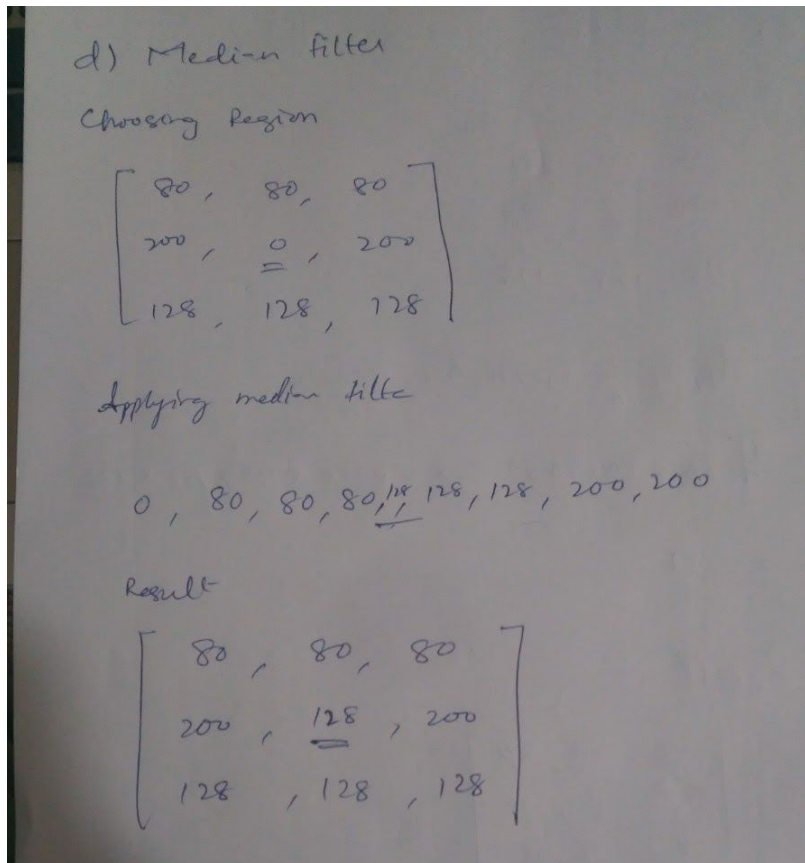 d) Median filter
Choosing Region
80, 80, 80
200, 0, 200
128, 128, 128
Applying median filte
0, 80, 80, 80, 128, 128, 128, 200, 200
Result
80, 80, 80
200, 128, 200
128, 128, 128